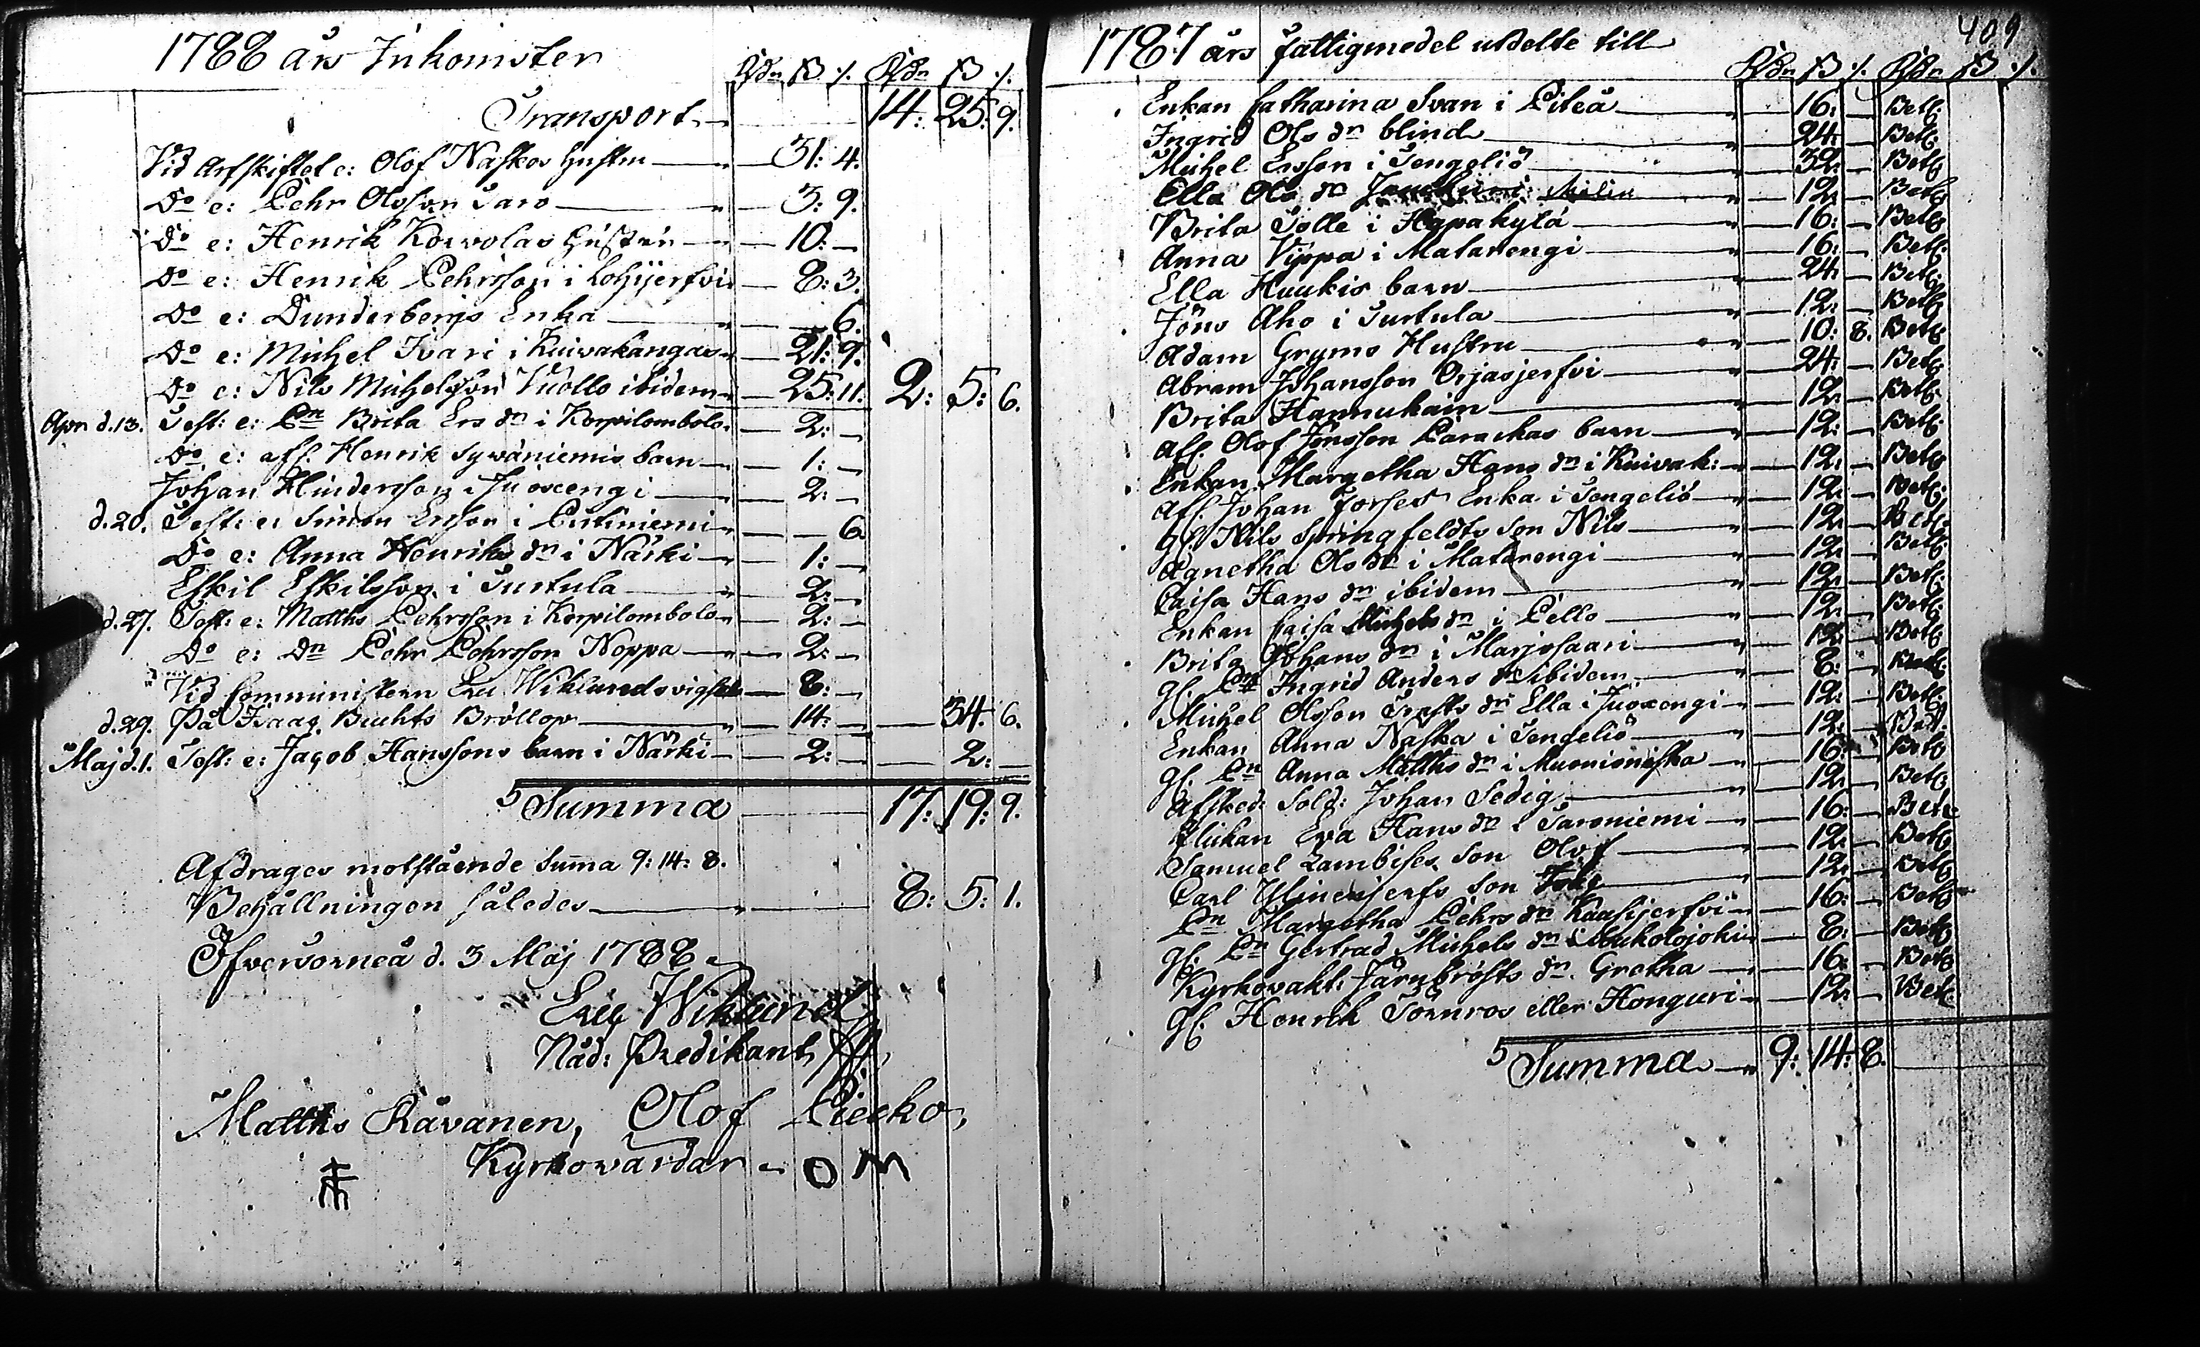 1788 års Inkomster
Rdr ß /. Rdr ß /.
Transport 14: 25: 9.
Vid Arfskiftet e: Olof Naskos hustru 31: 4.
Do e: Pehr Olsson Saro 3: 9.
Do e: Henrik Korvolas hustru 10: —
Do e: Henrik Pehrsson i Lohijerfvi 8: 3.
Do e: Dunderbergs Enka 6.
Do e: Michel Ivari i Kuivakangas 21: 9.
Do e: Nils Michelsson Vuollo ibidem 25: 11. 2: 5: 6.
Apr d. 13. Test: e: Pn Brita Ers dn i Korpilombolo 2: —
Do e: afl: Henrik Syväniemis barn 1: —
Johan Hindersson i Juoxengi 2: —
d. 20. Test: e: Simon Ersson i Putiniemi 6
Do e: Anna Henriks dn i Närki 1: —
Eskil Eskilsson i Turtula 2: —
d. 27. Test: e: Matths Pehrsson i Korpilombolo 2: —
Do e: Dn Pehr Pehrsson Noppa 2: —
Vid Comministern Eric Wiklunds vigsel 8: —
d. 29. På Isaac Buchts Bröllop 14: — 34: 6.
Maj d. 1. Test: e: Jacob Hanssons barn i Närki 2: — 2: —
Summa 17: 19: 9.
Afdrages motstående Summa 9: 14: 8.
Behållningen således 8: 5: 1.
Öfvertorneå d. 3 Maj 1788
Eric Wiklund
Nåd: Predikant
Matths Rävanen, Olof Piecko,
Kyrkovärdar O M
409
1787 års fattigmedel utdelte till
Rdr ß /. Rdr ß /.
Enkan Catharina Svan i Piteå 16: — Bett
Ingrid Ols dn blind 24: — Bett
Michel Ersson i Tengeliö 32: — Bett
Ella Ols dn 12: — Bett
Brita Tolle i Hapakylä 16: — Bett
Anna Vippa i Matarengi 16: — Bett
Ella Huukis barn 24: — Bett
Jöns Aho i Turtula 12: — Bett
Adam Gryms Hustru 10: 8. Bett
Abram Johansson Orjasjerfvi 24: Bett
Brita Hannukain 12: Bett
Afl. Olof Jönsson Parackas barn 12: — Bett
Enkan Margetha Hans dn i Kuivak: 12: — Bett
Afl. Johan Forses Enka i Tengeliö 12: — Bett
gl. Nils Springfeldts son Nils 12: — Bett
Agnetha Ols dn i Matarengi 12: — Bett
Caisa Hans dn ibidem 12: — Bett
Enkan Caisa Michels dn i Pello 12: — Bett
Brita Johans dn i Marjosaari 12: Bett
gl. Pn Ingrid Anders dn ibidem 8: — Bett
Michel Olsson Trasts dn Ella i Juoxengi 12: — Bett
Enkan Anna Naska i Tengeliö 12: — Bett
gl. Pn Anna Matths dn i Muonioniska 16: — Bett
Afsked: Sold: Johan Sedig 12: — Bett
Flickan Eva Hans dn i Saroniemi 16: — Bett
Samuel Lambises son Olof 12: — Bett
Carl Ylinenjerfs son 12: — Bett
Pn Margetha Pehrs dn Kuusijerfvi 16: — Bett
gl. Pn Gertrud Michels dn i Mukolojoki 8: — Bett
Kyrkovakt: Järnbrösts dn Gretha 16: — Bett
gl. Henrik Törnros eller Honguri 12: — Bett
Summa 9: 14: 8.